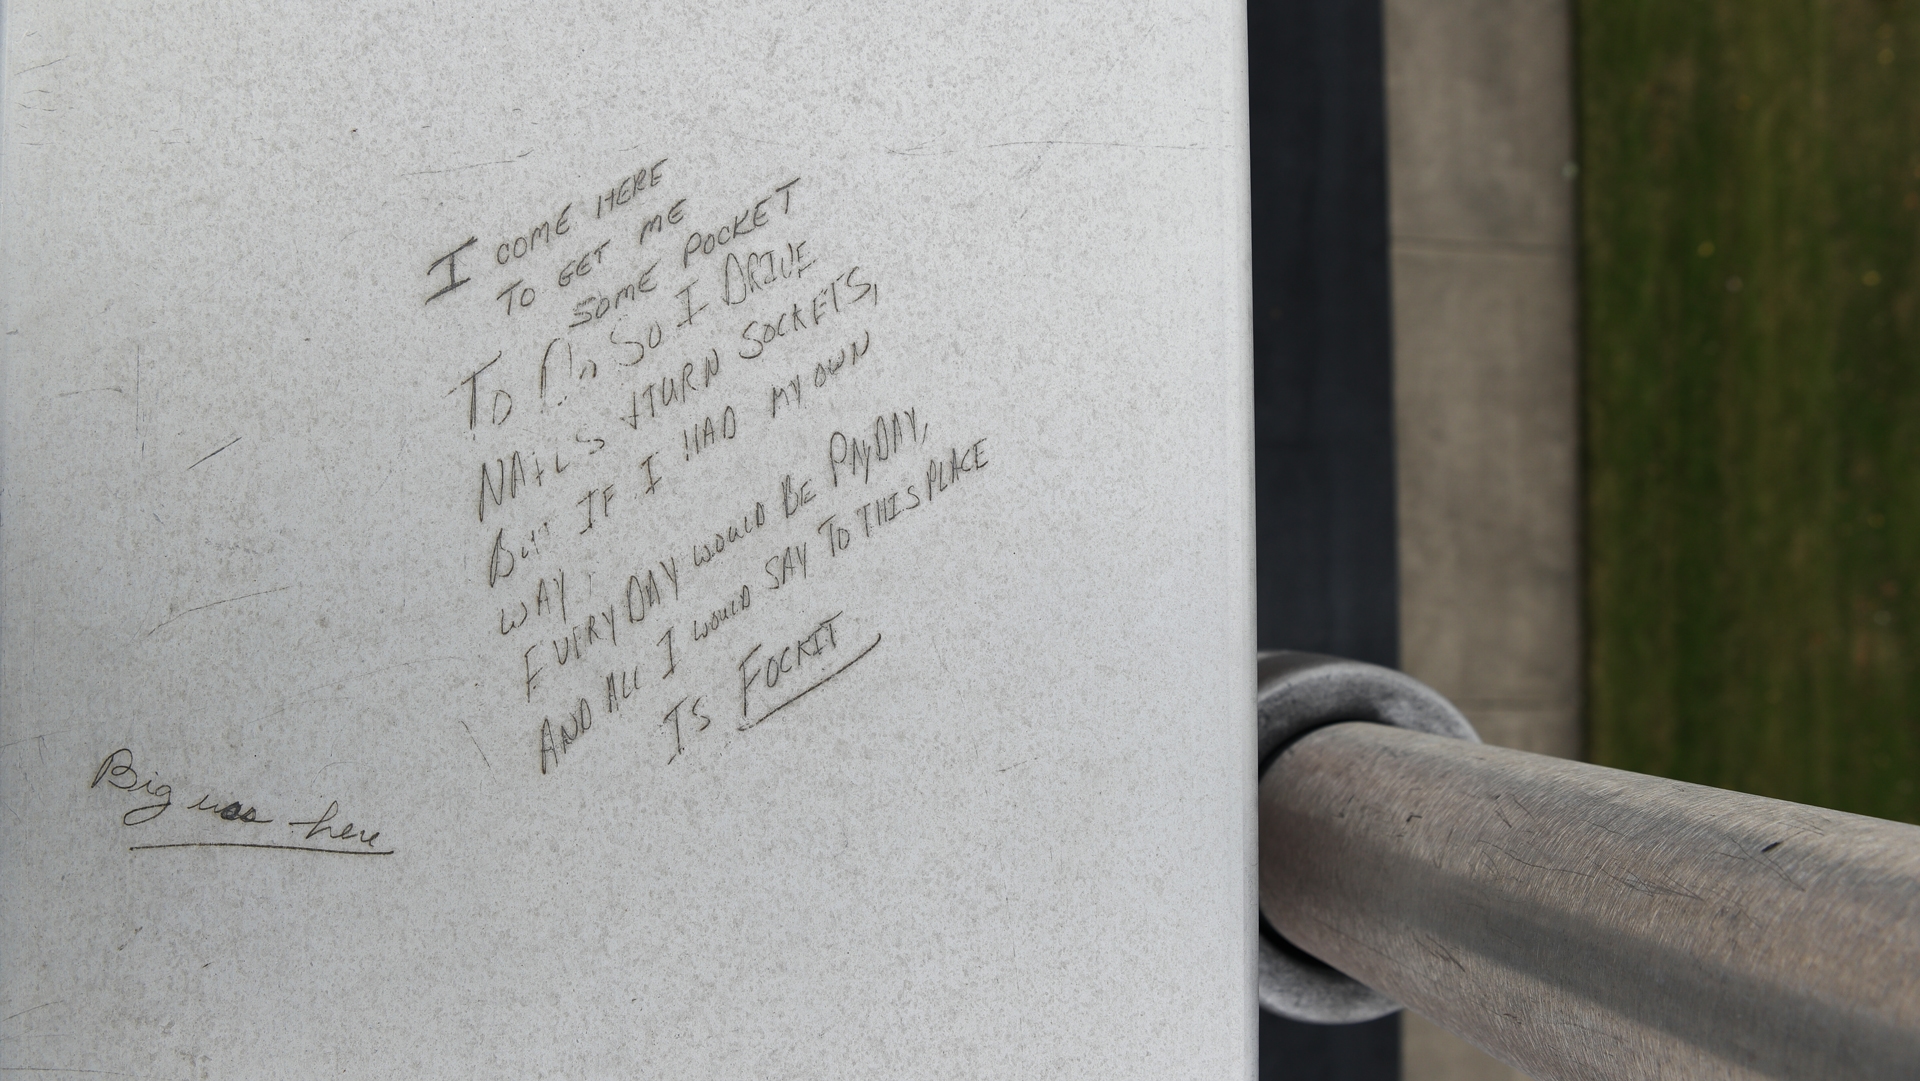 I COME HERE
TO GET ME
SOME POCKET
TO SO I DRIVE
NAILS +TURN SOCKETS,
BUT IF I HAD MY OWN
WAY,
EVERY DAY WOULD BE PAYDAY,
AND ALL I WOULD SAY TO THIS PLACE
IS FOCKIT
Big was here